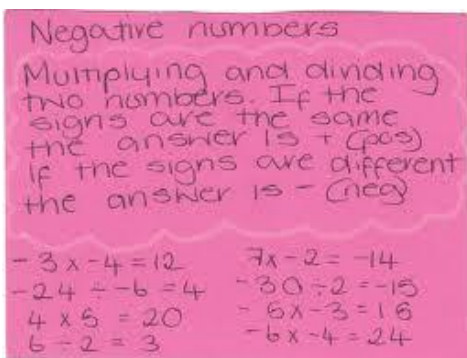 Negative numbers
Multiplying and dividing
two numbers. If the
signs are the same
the answer is + (pos)
If the signs are different
the answer is - (neg)
-3 x -4 = 12
-24 ÷ -6 = 4
4 x 5 = 20
6 ÷ 2 = 3
7x -2 = -14
-30 ÷ 2 = -15
- 5x -3 = 15
-6x -4 = 24